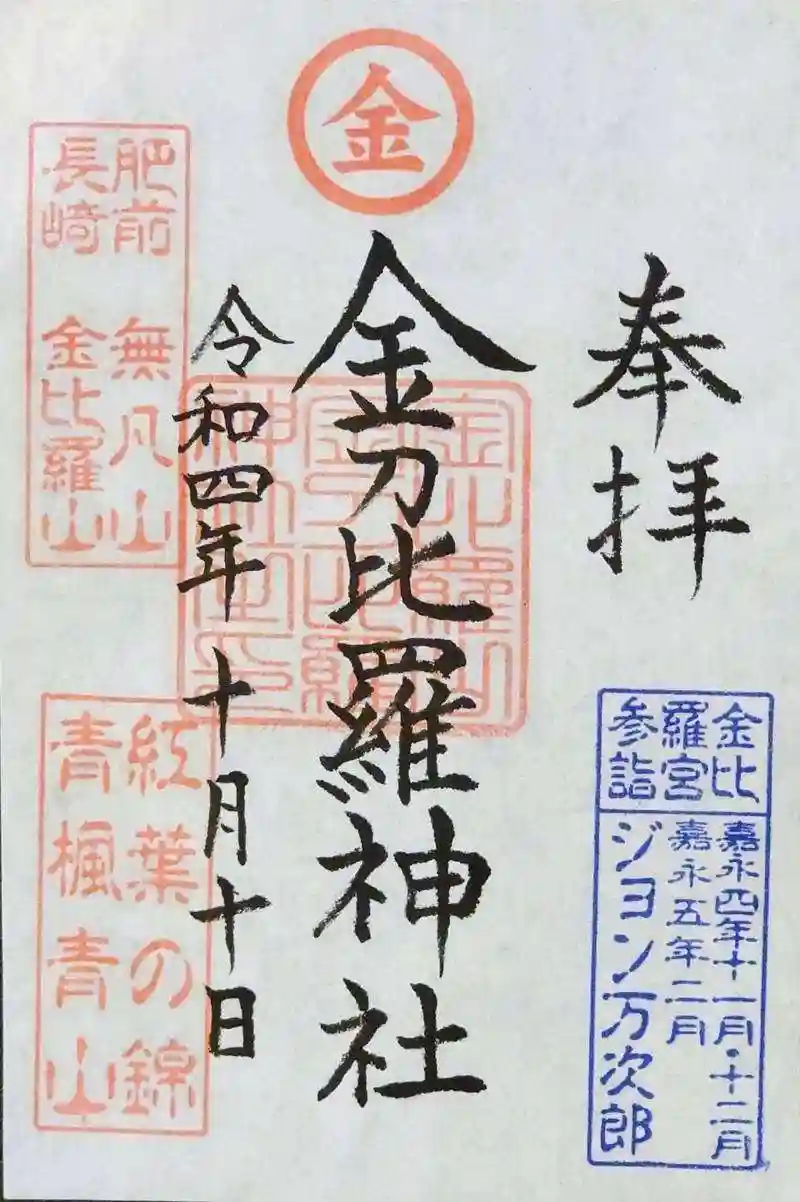 金
奉拝
金刀比羅神社
令和四年十月十日
肥前 無凡山
長崎 金比羅山
紅葉の錦
青楓青山
金比
羅宮
参詣
嘉永四年十一月・十二月
嘉永五年二月
ジョン万次郎